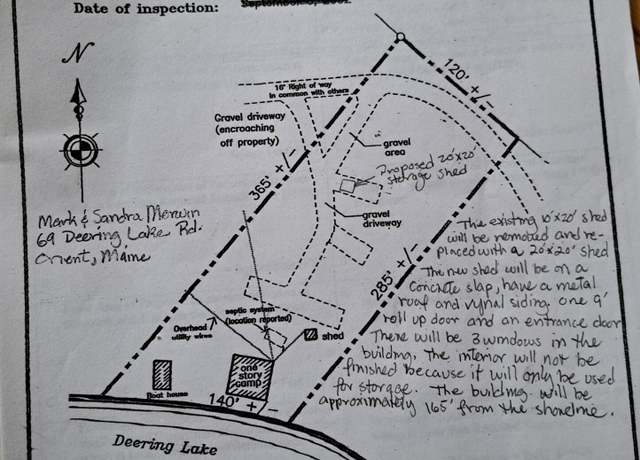 Date of inspection:
N
16" Right of way
in common with others
120' +/-
Gravel driveway
(encroaching
off property)
gravel
area
Proposed 20'x20'
storage shed
365' +/-
gravel
driveway
Mark & Sandra Merwin
69 Deering Lake Rd.
Orient, Maine
285' +/-
The existing 10'x20' shed
will be removed and re-
placed with a 20'x20' shed
The new shed will be on a
concrete slap, have a metal
roof and vynal siding. one 9'
roll up door and an entrance door
There will be 3 windows in the
building. The interior will not be
finished because it will only be used
for storage. The building will be
approximately 165' from the shoreline.
septic system
(location reported)
Overhead
utility wires
shed
one
story
camp
Boat house
140' +/-
Deering Lake